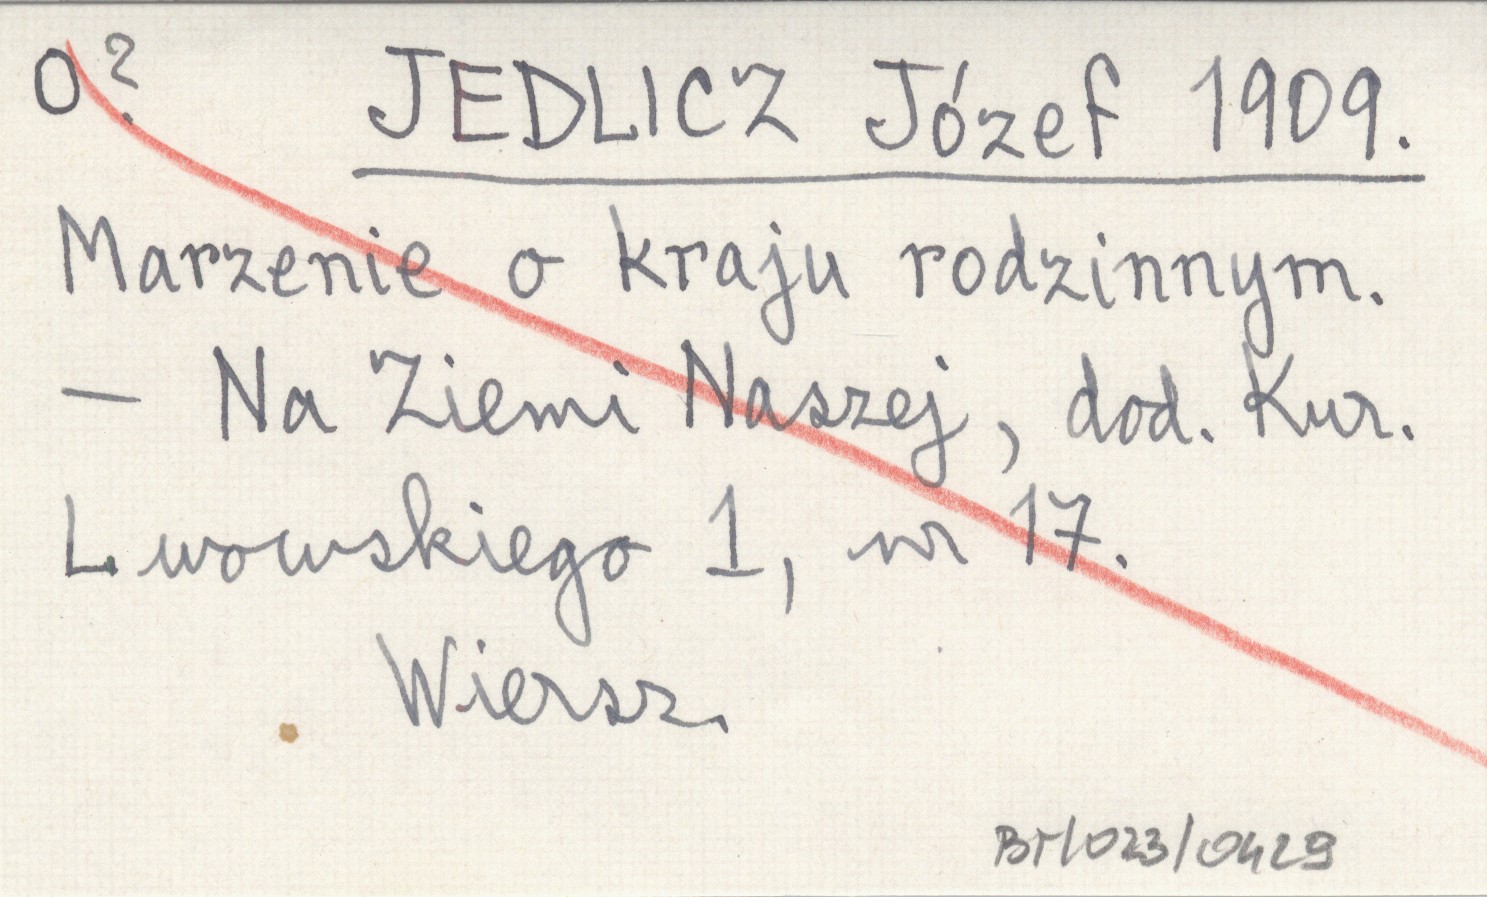 O? JEDLICZ Józef 1909.
Marzenie o kraju rodzinnym.
— Na Ziemi Naszej, dod. Kur.
Lwowskiego 1, nr 17.
Wiersz.
BT/023/0429